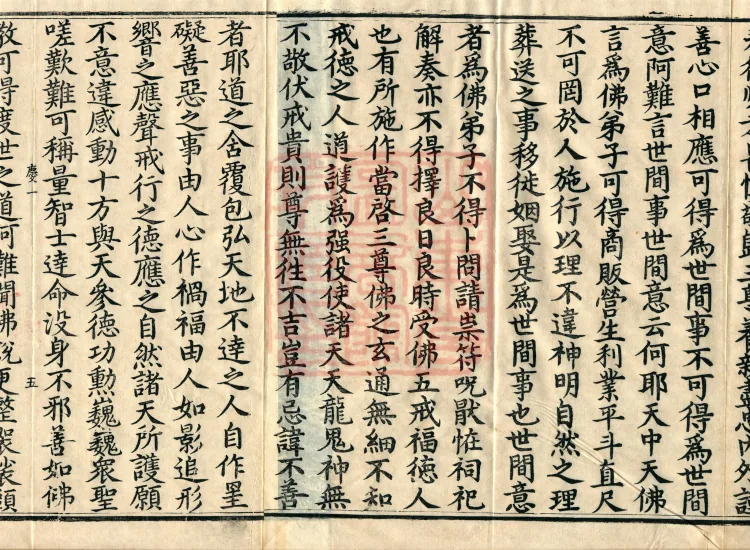 善心口相應可得爲世間事不可得爲世間
意阿難言世間事世間意云何耶天中天佛
言爲佛弟子可得商販營生利業平斗直尺
不可罔於人施行以理不違神明自然之理
葬送之事移徙姻娶是爲世間事也世間意
者爲佛弟子不得卜問請祟符呪厭恠祠祀
解奏亦不得擇良日良時受佛五戒福德人
也有所施作當啓三尊佛之玄通無細不知
戒德之人道護爲强役使諸天天龍鬼神無
不敬伏戒貴則尊無徃不吉豈有忌諱不善
者耶道之舍覆包弘天地不達之人自作罣
礙善惡之事由人心作禍福由人如影追形
響之應聲戒行之德應之自然諸天所護願
不意違感動十方與天參德功勲巍巍衆聖
嗟歎難可稱量智士達命没身不邪善如佛
慶一 五
教可得度世之道阿難聞佛說更整袈裟頭